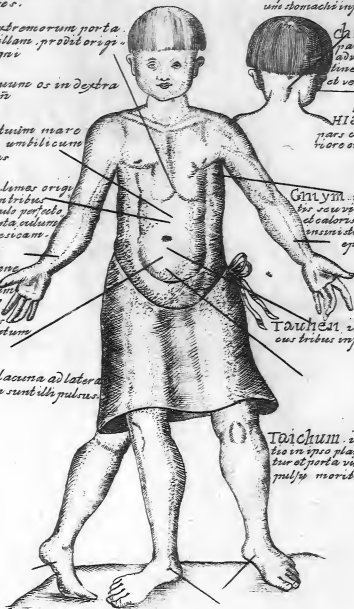 es.
xtremorum porta.
illam. prodit origi-
gni
uum os in dextra
m
tuum mare
umbilicum
us
limes origi
ntribus
ulo perfecto
nta oculum
esicam.
ene
im
stum
lacuna ad latera
n sunt illi pulsus.
um stomachi in
ch
pa
adv
tine
et ve
Hiè
pars o
riore o
Gnym.
tis seu vi
et caloris
in sinist
ep
Tauhen. i
cus tribus inf
Taichum. i
tio in ipso pla
tur et porta vi
pulsq moritu